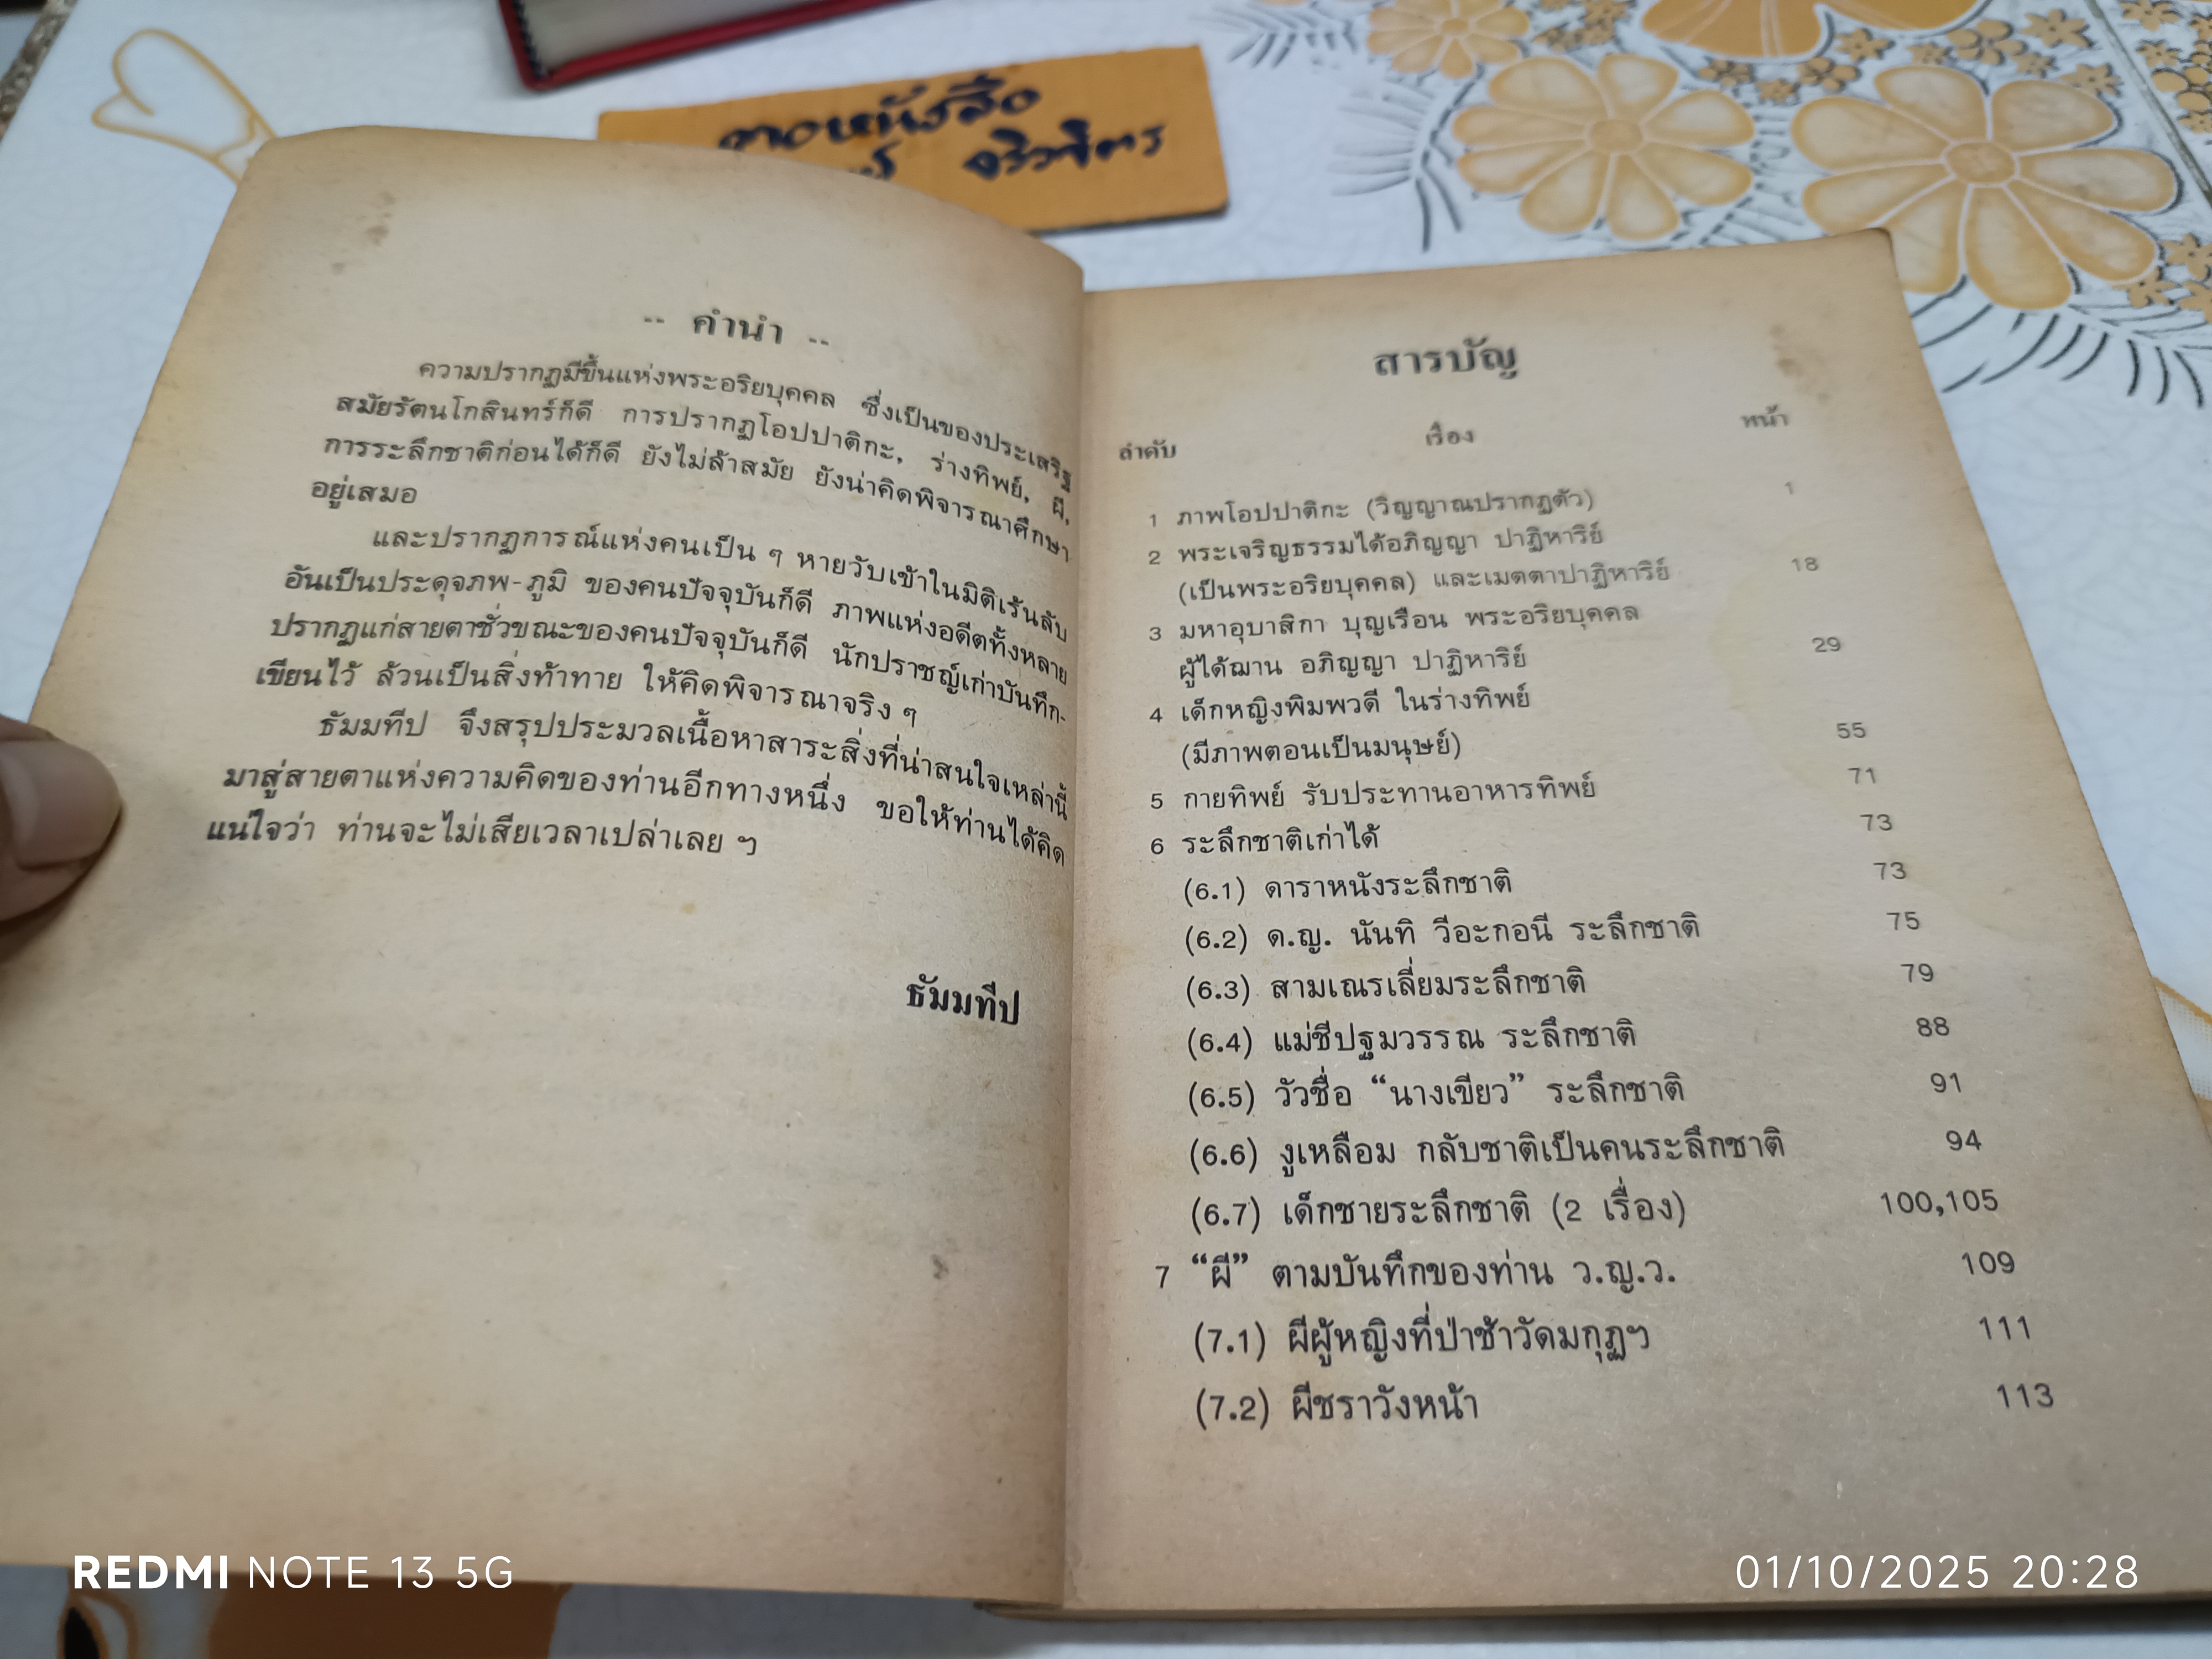 ตอหนังสือ
จริวจิตร
-- คำนำ --
ความปรากฏมีขึ้นแห่งพระอริยบุคคล ซึ่งเป็นของประเสริฐ
สมัยรัตนโกสินทร์ก็ดี การปรากฏโอปปาติกะ, ร่างทิพย์, ผี,
การระลึกชาติก่อนได้ก็ดี ยังไม่ล้าสมัย ยังน่าคิดพิจารณาศึกษา
อยู่เสมอ
และปรากฏการณ์แห่งคนเป็น ๆ หายวับเข้าในมิติเร้นลับ
อันเป็นประดุจภพ-ภูมิ ของคนปัจจุบันก็ดี ภาพแห่งอดีตทั้งหลาย
ปรากฏแก่สายตาชั่วขณะของคนปัจจุบันก็ดี นักปราชญ์เก่าบันทึก-
เขียนไว้ ล้วนเป็นสิ่งท้าทาย ให้คิดพิจารณาจริง ๆ
ธัมมทีป จึงสรุปประมวลเนื้อหาสาระสิ่งที่น่าสนใจเหล่านี้
มาสู่สายตาแห่งความคิดของท่านอีกทางหนึ่ง ขอให้ท่านได้คิด
แน่ใจว่า ท่านจะไม่เสียเวลาเปล่าเลย ฯ
ธัมมทีป
สารบัญ
ลำดับ เรื่อง หน้า
1 ภาพโอปปาติกะ (วิญญาณปรากฏตัว) 1
2 พระเจริญธรรมได้อภิญญา ปาฏิหาริย์
(เป็นพระอริยบุคคล) และเมตตาปาฏิหาริย์ 18
3 มหาอุบาสิกา บุญเรือน พระอริยบุคคล
ผู้ได้ฌาน อภิญญา ปาฏิหาริย์ 29
4 เด็กหญิงพิมพวดี ในร่างทิพย์
(มีภาพตอนเป็นมนุษย์) 55
5 กายทิพย์ รับประทานอาหารทิพย์ 71
6 ระลึกชาติเก่าได้ 73
(6.1) ดาราหนังระลึกชาติ 73
(6.2) ด.ญ. นันทิ วีอะกอนี ระลึกชาติ 75
(6.3) สามเณรเลี่ยมระลึกชาติ 79
(6.4) แม่ชีปฐมวรรณ ระลึกชาติ 88
(6.5) วัวชื่อ “นางเขียว” ระลึกชาติ 91
(6.6) งูเหลือม กลับชาติเป็นคนระลึกชาติ 94
(6.7) เด็กชายระลึกชาติ (2 เรื่อง) 100,105
7 “ผี” ตามบันทึกของท่าน ว.ญ.ว. 109
(7.1) ผีผู้หญิงที่ป่าช้าวัดมกุฏฯ 111
(7.2) ผีชราวังหน้า 113
REDMI NOTE 13 5G
01/10/2025 20:28